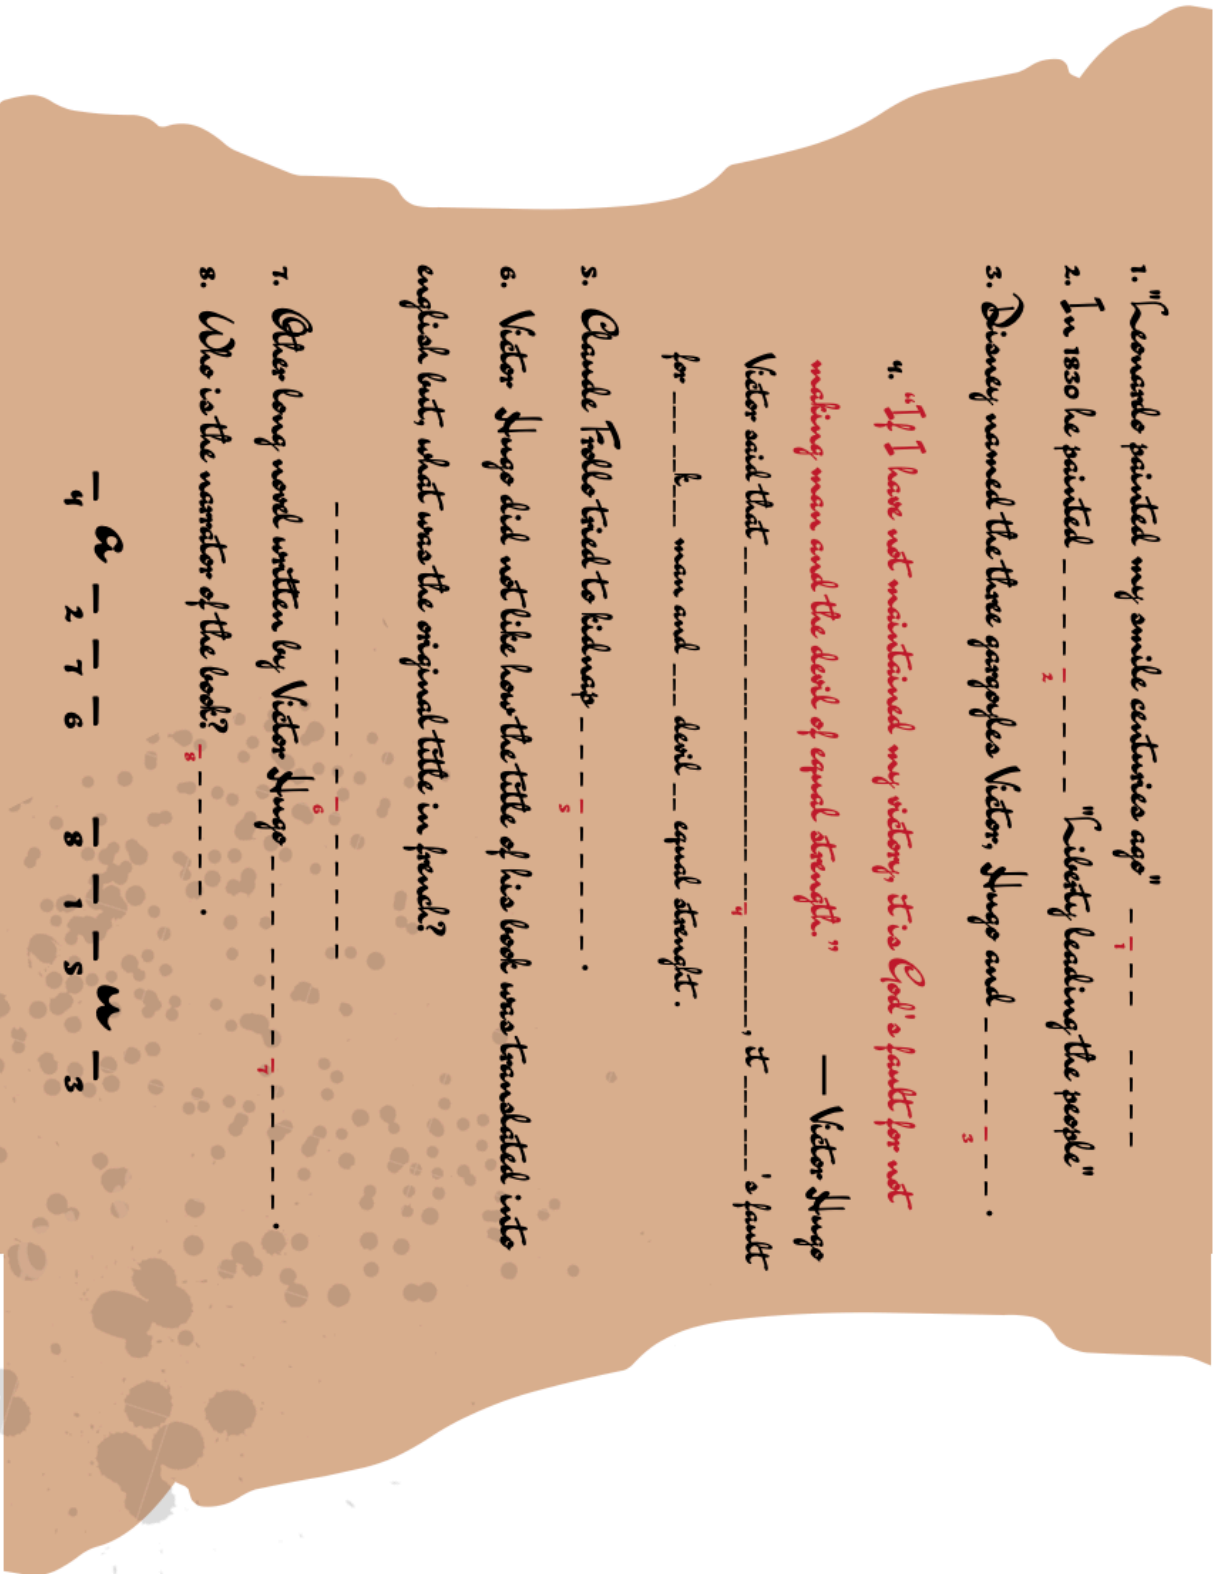 1. "Leonardo painted my smile centuries ago" _ _ _ _   _ _ _ _
1
2. In 1830 he painted _ _ _ _ _ _ _ _ _ "Liberty leading the people"
2
3. Disney named the three gargoyles Victor, Hugo and _ _ _ _ _ _ _ _.
3
4. “If I have not maintained my victory, it is God's fault for not
making man and the devil of equal strength.”
— Victor Hugo
Victor said that __ __ ___ ____ __________ __ _________, it ___ ___'s fault
4
for ___ __k___ man and ___ devil __ equal strenght.
5. Claude Frollo tried to kidnap _ _ _ _ _ _ _ _ _.
5
6. Victor Hugo did not like how the title of his book was translated into
english but, what was the original tittle in french?
_ _ _ _ _ _ _ _ _ _ _ _ _ _ _ _
6
7. Other long novel written by Victor Hugo _ _ _   _ _ _ _ _ _ _ _ _ _.
7
8. Who is the narrator of the book? _ _ _ _ _ _ _.
8
_ a _ _ _   _ _ _ u _
4 2 7 6 8 1 5 3